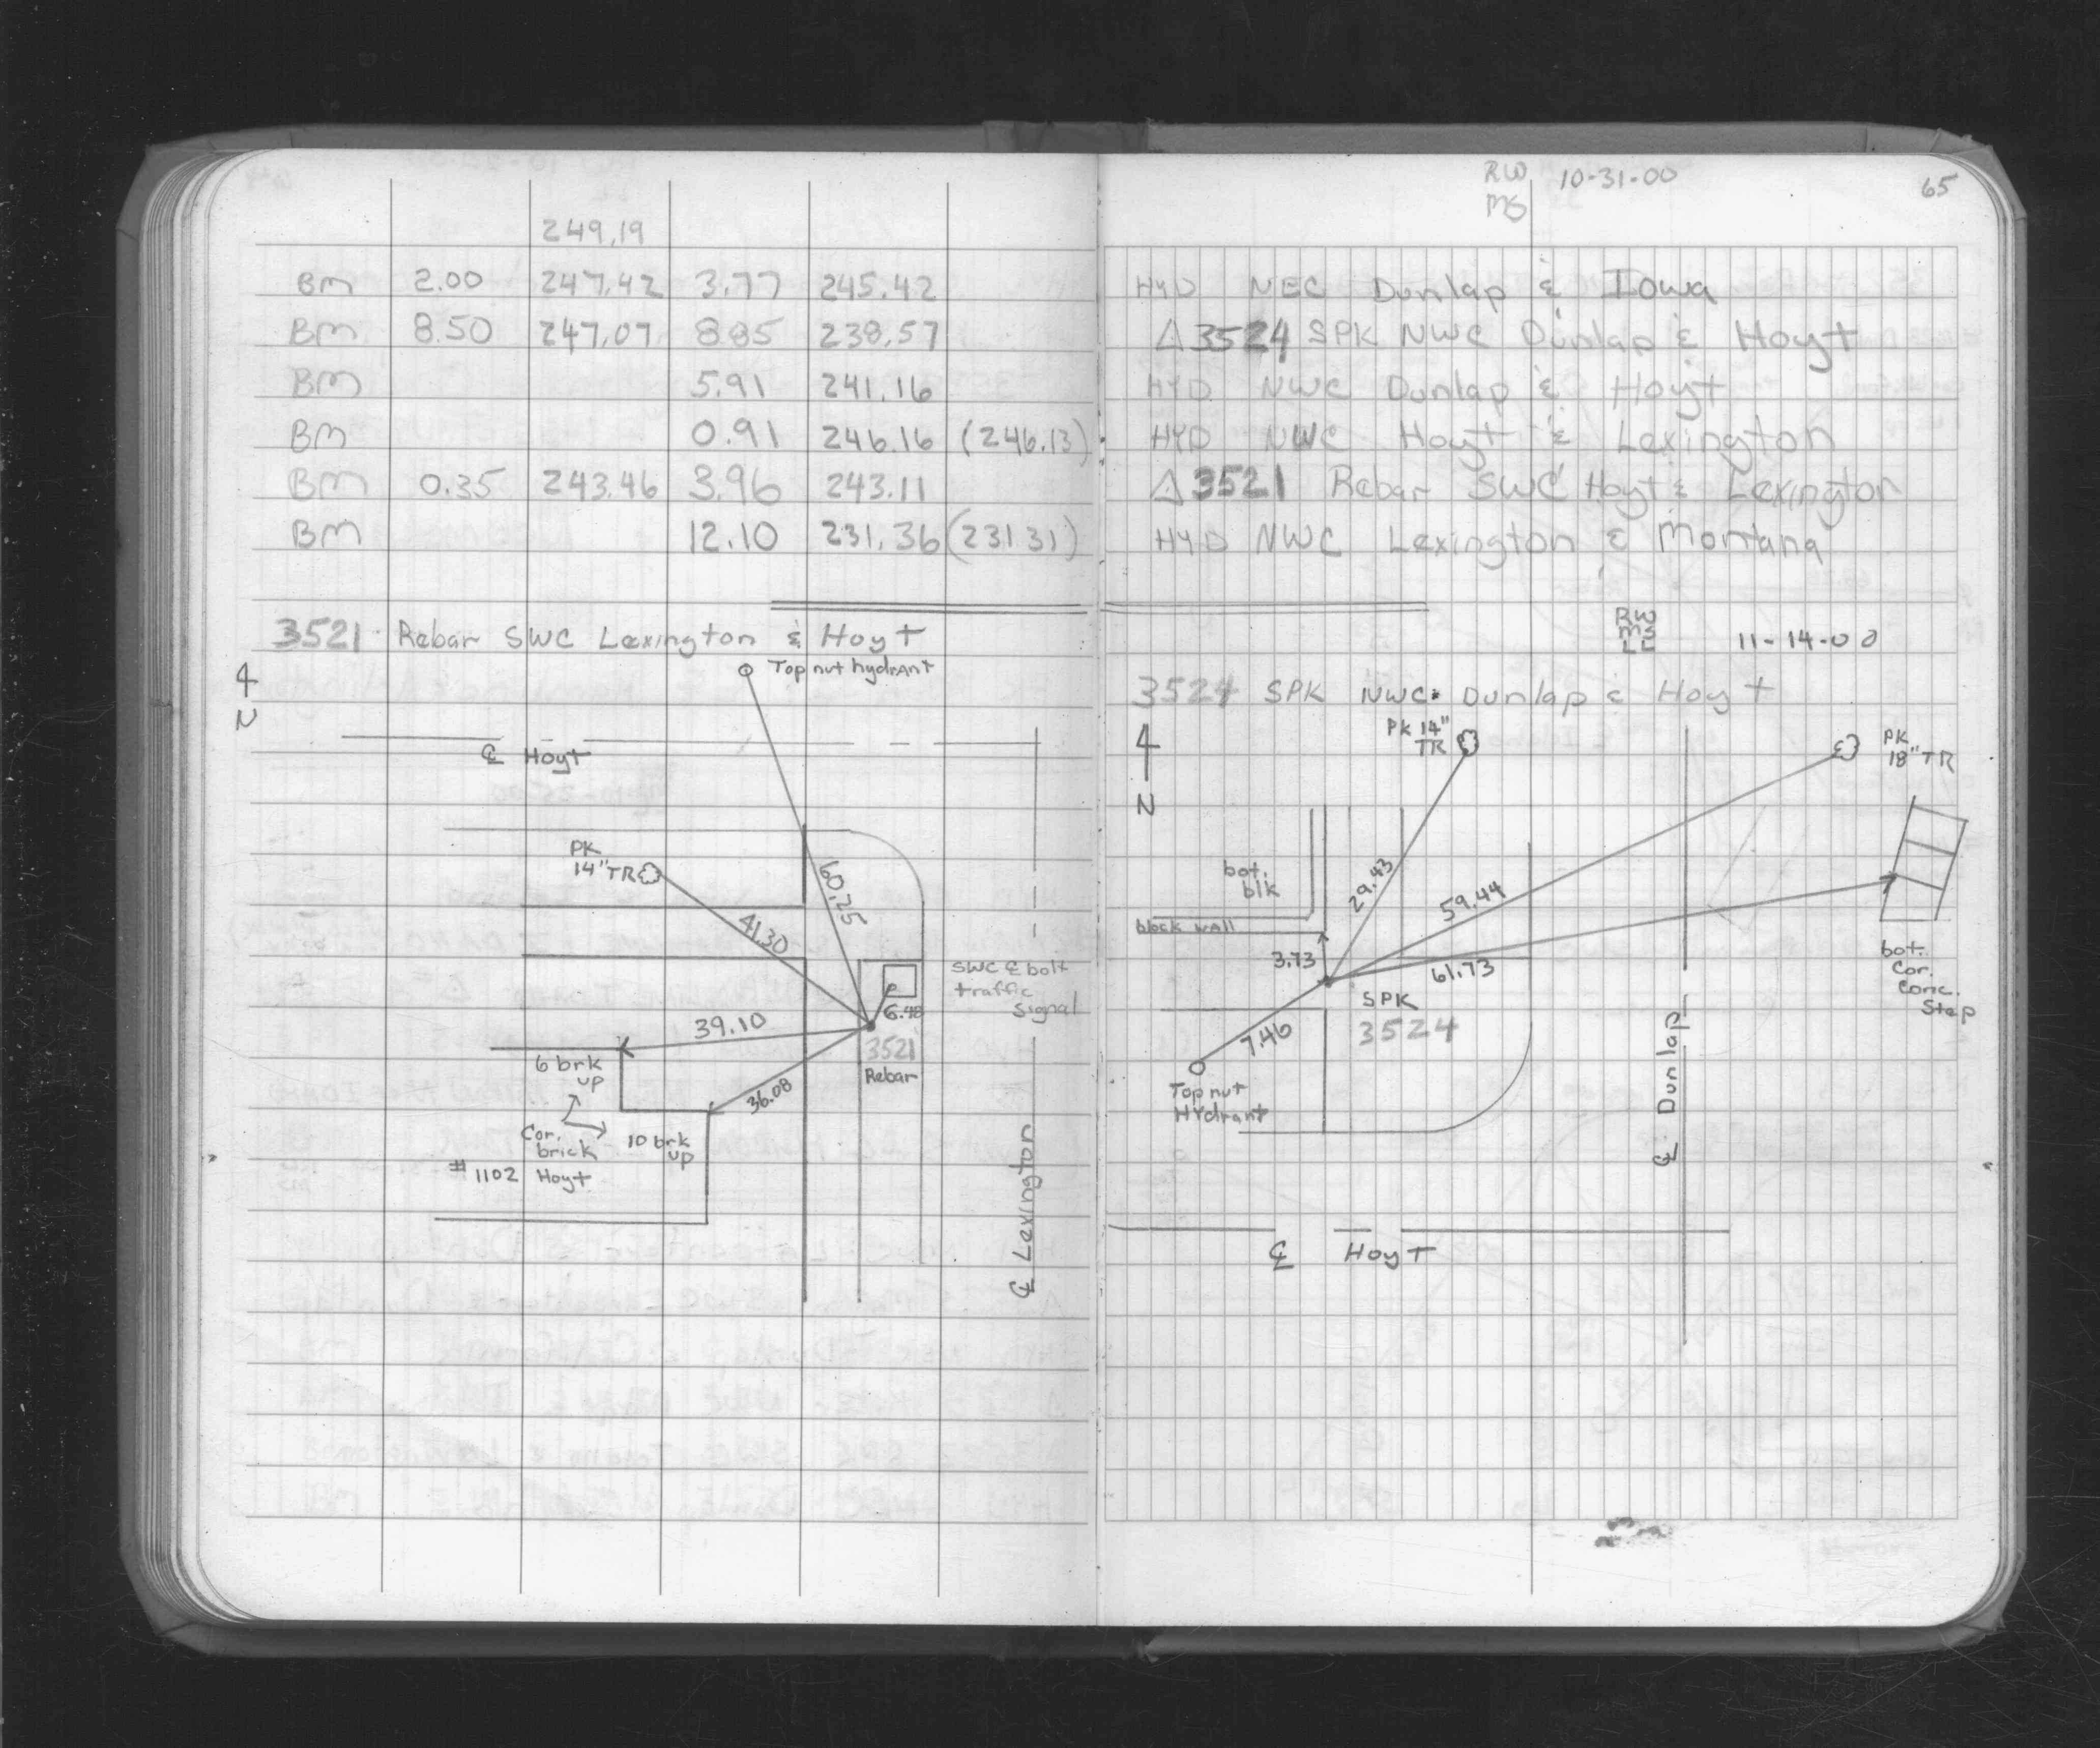 249.19
BM 2.00 247.42 3.77 245.42
BM 8.50 247.07 8.85 238.57
BM 5.91 241.16
BM 0.91 246.16 (246.13)
BM 0.35 243.46 3.96 243.11
BM 12.10 231.36 (231.31)
3521 Rebar SWC Lexington & Hoyt
Top nut hydrant
N
℄ Hoyt
PK
14" TR
60.25
41.30
SWC & bolt
traffic
signal
6.48
39.10
3521
Rebar
6 brk
up
36.08
Cor.
brick
10 brk
up
#1102 Hoyt
℄ Lexington
RW 10-31-00
MS
65
HYD NEC Dunlap & Iowa
△3524 SPK NWC Dunlap & Hoyt
HYD NWC Dunlap & Hoyt
HYD NWC Hoyt & Lexington
△3521 Rebar SWC Hoyt & Lexington
HYD NWC Lexington & Montana
RW
MS
LC
11-14-00
3524 SPK NWC Dunlap & Hoyt
PK 14"
TR
PK
18" TR
N
bot.
blk
29.43
59.44
block wall
3.73
61.73
bot.
Cor.
Conc.
Step
SPK
3524
7.46
Top nut
Hydrant
℄ Dunlap
℄ Hoyt